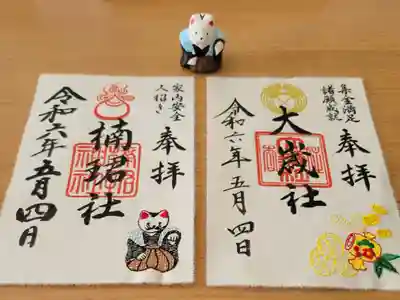 集金満足
諸願成就
奉拝
大歳社
令和六年五月四日
家内安全
人招き
奉拝
楠珺社
令和六年五月四日